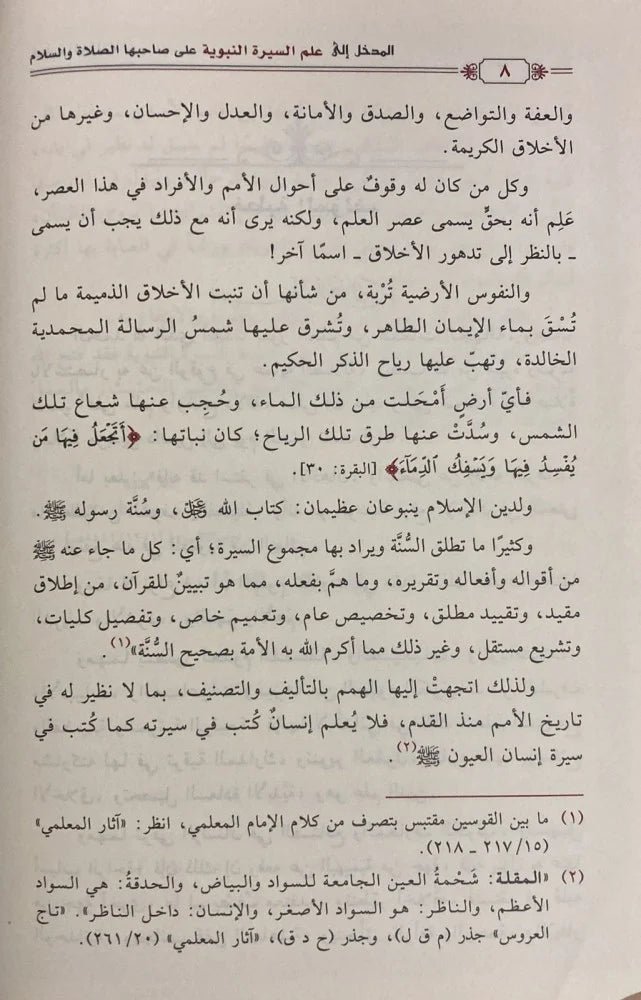 المدخل إلى علم السيرة النبوية على صاحبها الصلاة والسلام
٨
والعفة والتواضع، والصدق والأمانة، والعدل والإحسان، وغيرها من
الأخلاق الكريمة.
وكل من كان له وقوفٌ على أحوال الأمم والأفراد في هذا العصر،
عَلِم أنه بحقٍّ يسمى عصر العلم، ولكنه يرى أنه مع ذلك يجب أن يسمى
ـ بالنظر إلى تدهور الأخلاق ـ اسمًا آخر!
والنفوس الأرضية تُرْبة، من شأنها أن تنبت الأخلاق الذميمة ما لم
تُسْقَ بماء الإيمان الطاهر، وتُشرق عليها شمسُ الرسالة المحمدية
الخالدة، وتهبّ عليها رياح الذكر الحكيم.
فأيّ أرضٍ أمْحَلت من ذلك الماء، وحُجِب عنها شعاع تلك
الشمس، وسُدَّتْ عنها طرق تلك الرياح؛ كان نباتها: ﴿أَتَجْعَلُ فِيهَا مَن
يُفْسِدُ فِيهَا وَيَسْفِكُ ٱلدِّمَآءَ﴾ [البقرة: ٣٠].
ولدين الإسلام ينبوعان عظيمان: كتاب الله عز وجل، وسُنَّة رسوله ﷺ.
وكثيرًا ما تطلق السُّنَّة ويراد بها مجموع السيرة؛ أي: كل ما جاء عنه ﷺ
من أقواله وأفعاله وتقريره، وما همَّ بفعله، مما هو تبيينٌ للقرآن، من إطلاق
مقيد، وتقييد مطلق، وتخصيص عام، وتعميم خاص، وتفصيل كليات،
وتشريع مستقل، وغير ذلك مما أكرم الله به الأمة بصحيح السُّنَّة»(١).
ولذلك اتجهتْ إليها الهمم بالتأليف والتصنيف، بما لا نظير له في
تاريخ الأمم منذ القدم، فلا يُعلم إنسانٌ كُتب في سيرته كما كُتب في
سيرة إنسان العيون ﷺ(٢).
(١) ما بين القوسين مقتبس بتصرف من كلام الإمام المعلمي، انظر: «آثار المعلمي»
(١٥/ ٢١٧ ـ ٢١٨).
(٢) «المقلة: شَحْمةُ العين الجامعة للسواد والبياض، والحدقةُ: هي السواد
الأعظم، والناظر: هو السواد الأصغر، والإنسان: داخل الناظر». «تاج
العروس» جذر (م ق ل)، وجذر (ح د ق)، «آثار المعلمي» (٢٠/ ٢٦١).